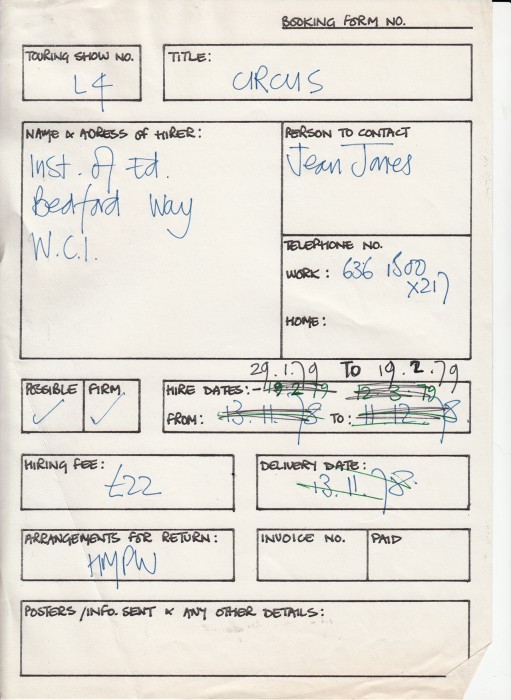 BOOKING FORM NO.
TOURING SHOW NO.
L4
TITLE:
CIRCUS
NAME & ADRESS OF HIRER:
Inst. of Ed.
Bedford Way
W.C.1.
PERSON TO CONTACT
Jean Jones
TELEPHONE NO.
WORK: 636 1500
x217
HOME:
29.1.79 TO 19.2.79
POSSIBLE FIRM.
HIRE DATES:- 19.2.79 12.3.79
FROM: 13.11.78 TO: 11 12 78
HIRING FEE:
£22
DELIVERY DATE:
13.11.78.
ARRANGEMENTS FOR RETURN:
HMPW
INVOICE NO. PAID
POSTERS/INFO. SENT & ANY OTHER DETAILS: